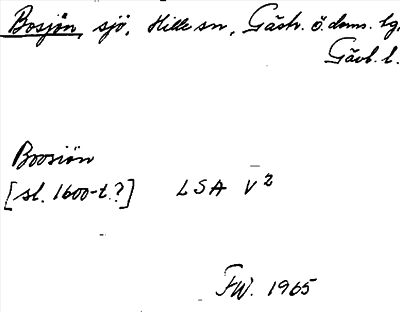 Bosjön, sjö, Hille sn, Gästr. ö. doms. tg,
Gävl. l.
Boosiön
[sl. 1600-t.?] LSA V²
FW. 1965